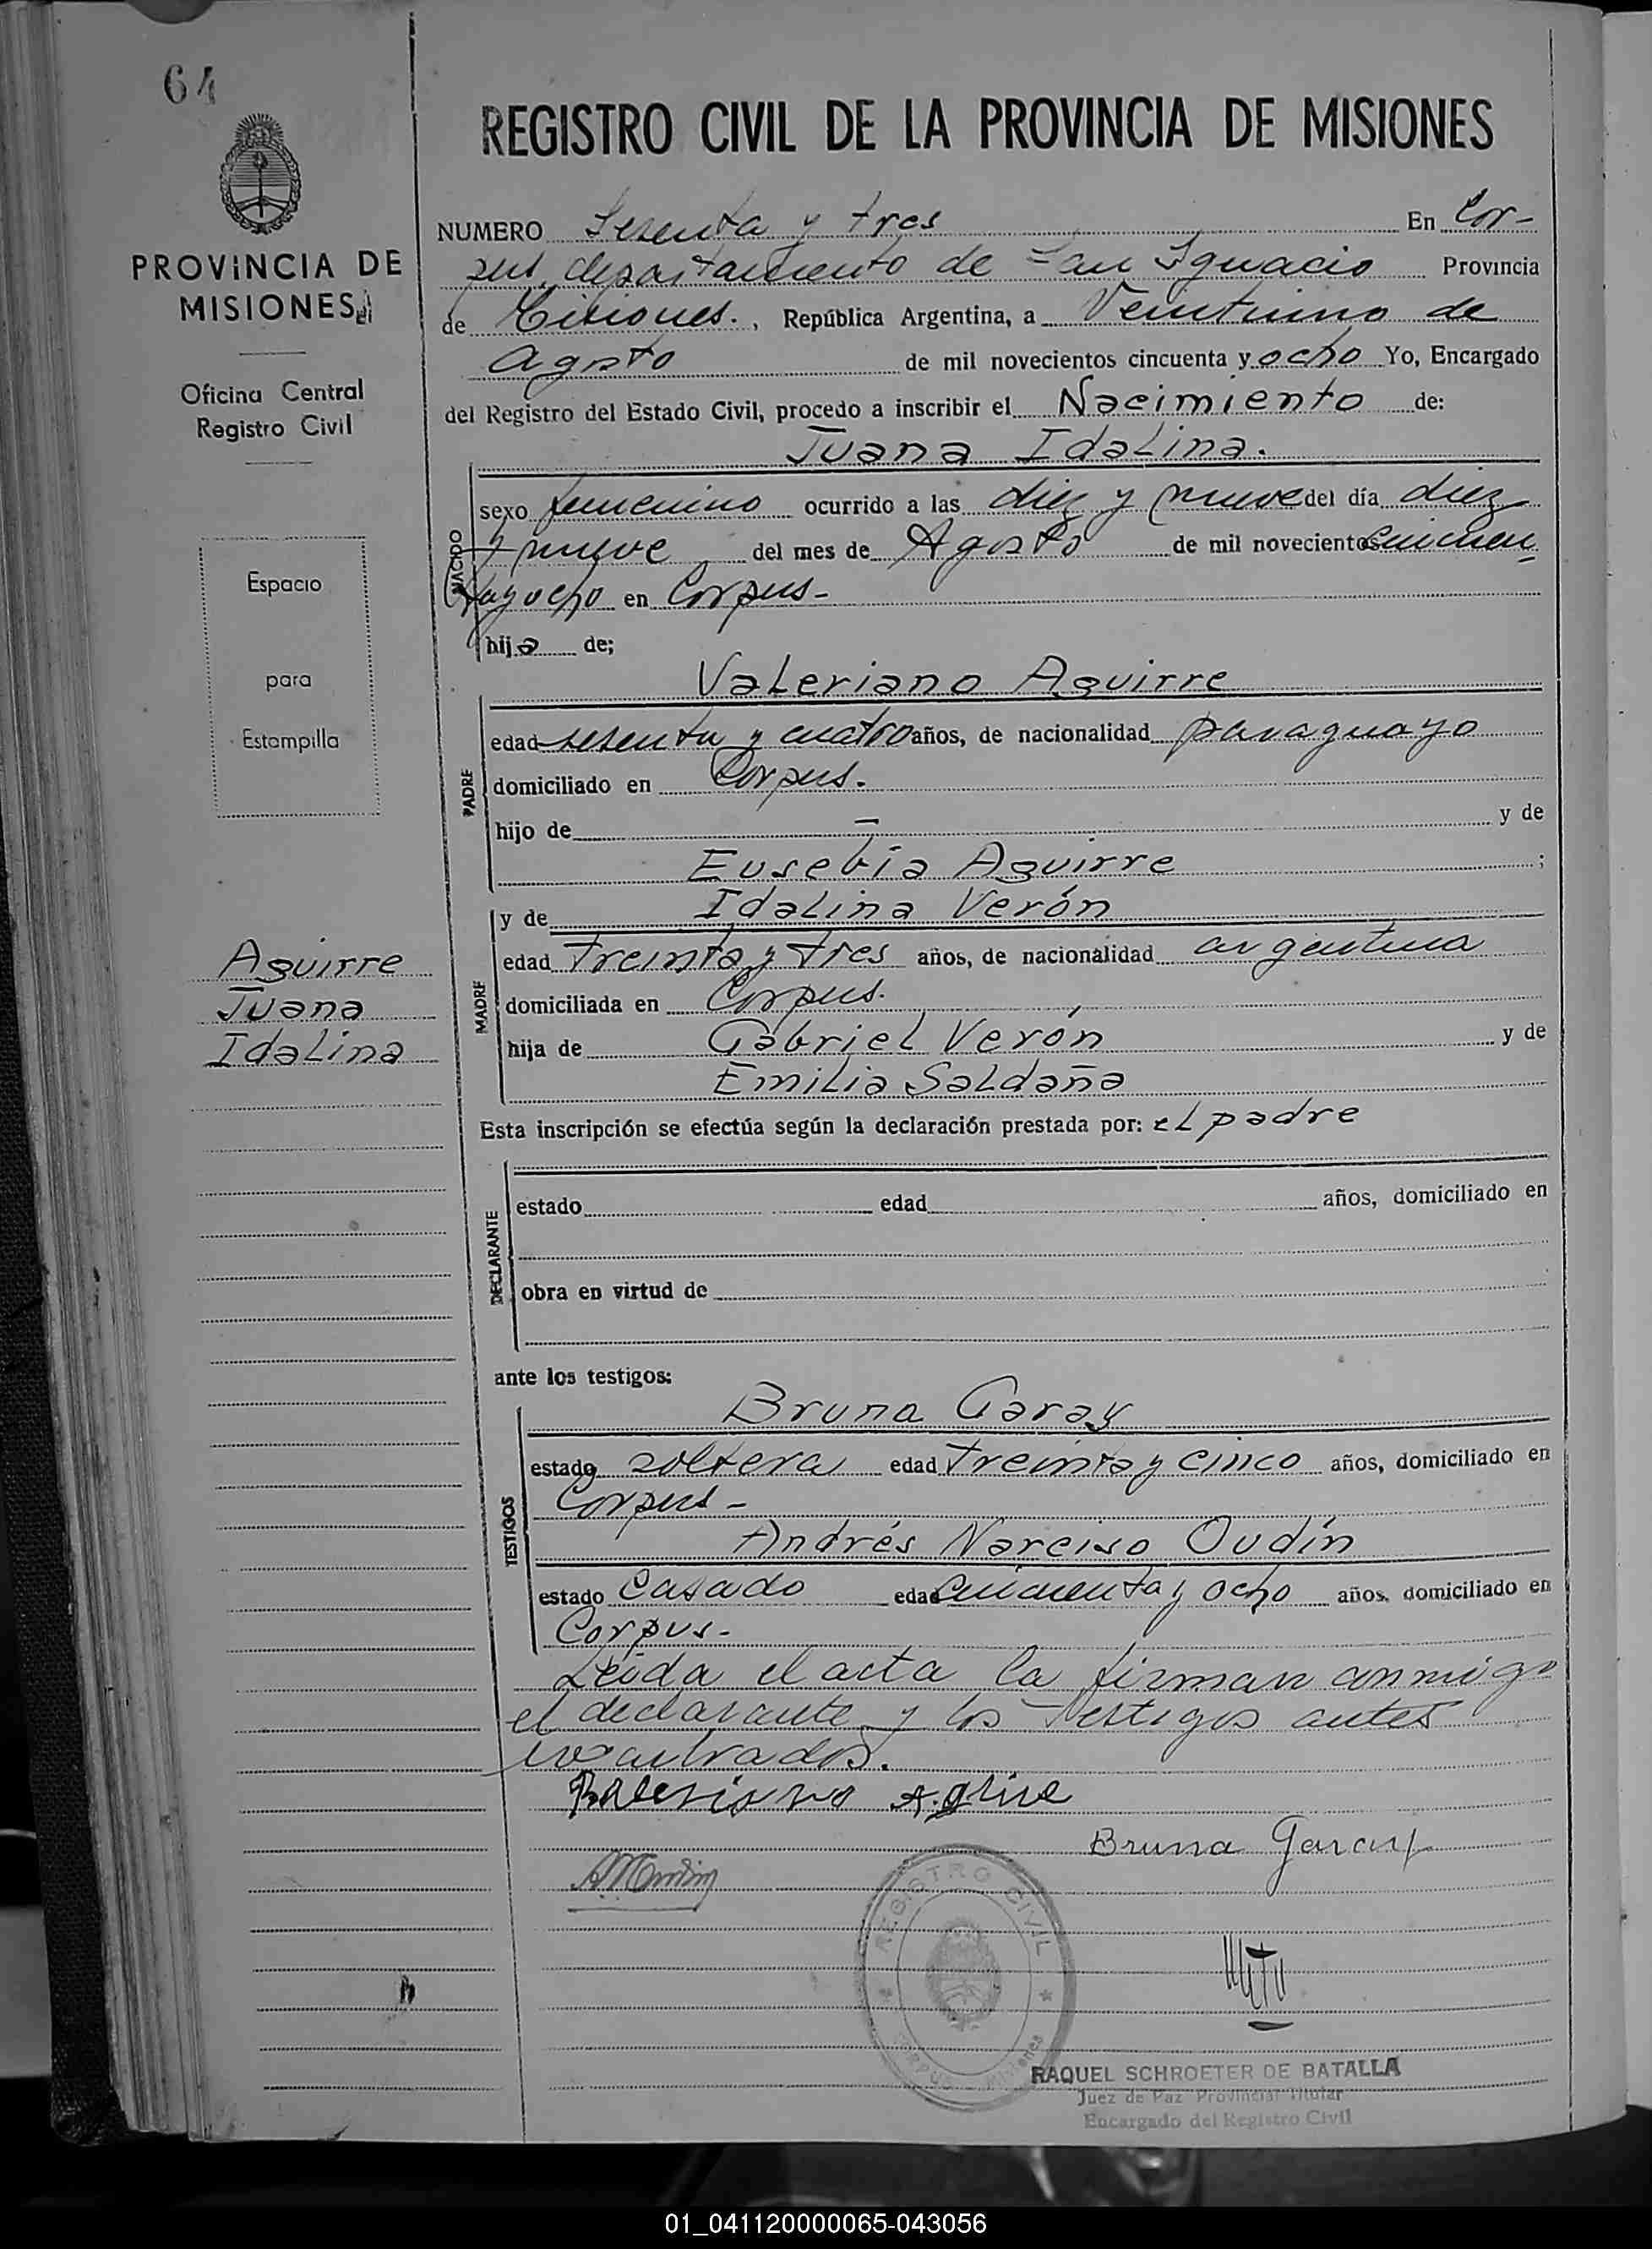 64
REGISTRO CIVIL DE LA PROVINCIA DE MISIONES
PROVINCIA DE
MISIONES
Oficina Central
Registro Civil
Espacio
para
Estampilla
Aguirre
Juana
Idalina
NUMERO Sesenta y tres En Cor-
pus, departamento de San Ignacio Provincia
de Misiones. , República Argentina, a Veintiuno de
Agosto de mil novecientos cincuenta y ocho Yo, Encargado
del Registro del Estado Civil, procedo a inscribir el Nacimiento de:
Juana Idalina.
NACIDO
sexo femenino ocurrido a las diez y nueve del día diez
y nueve del mes de Agosto de mil novecientos cincuen
tayocho en Corpus-
hija de;
Valeriano Aguirre
PADRE
edad sesenta y cuatro años, de nacionalidad paraguayo
domiciliado en Corpus.
hijo de — y de
Eusebia Aguirre ;
y de Idalina Verón
MADRE
edad treinta y tres años, de nacionalidad argentina
domiciliada en Corpus.
hija de Gabriel Verón y de
Emilia Saldaña
Esta inscripción se efectúa según la declaración prestada por: el padre
DECLARANTE
estado edad años, domiciliado en
obra en virtud de
ante los testigos:
Bruna Garay
TESTIGOS
estado soltera edad treinta y cinco años, domiciliado en
Corpus-
Andrés Narciso Oudín
estado Casado edad cincuenta y ocho años, domiciliado en
Corpus-
Leida el acta la firman conmigo
el declarante y los testigos antes
Bruna Garay
REGISTRO CIVIL
CORPUS Misiones
RAQUEL SCHROETER DE BATALLA
Juez de Paz Provincial Titular
Encargado del Registro Civil
01_041120000065-043056